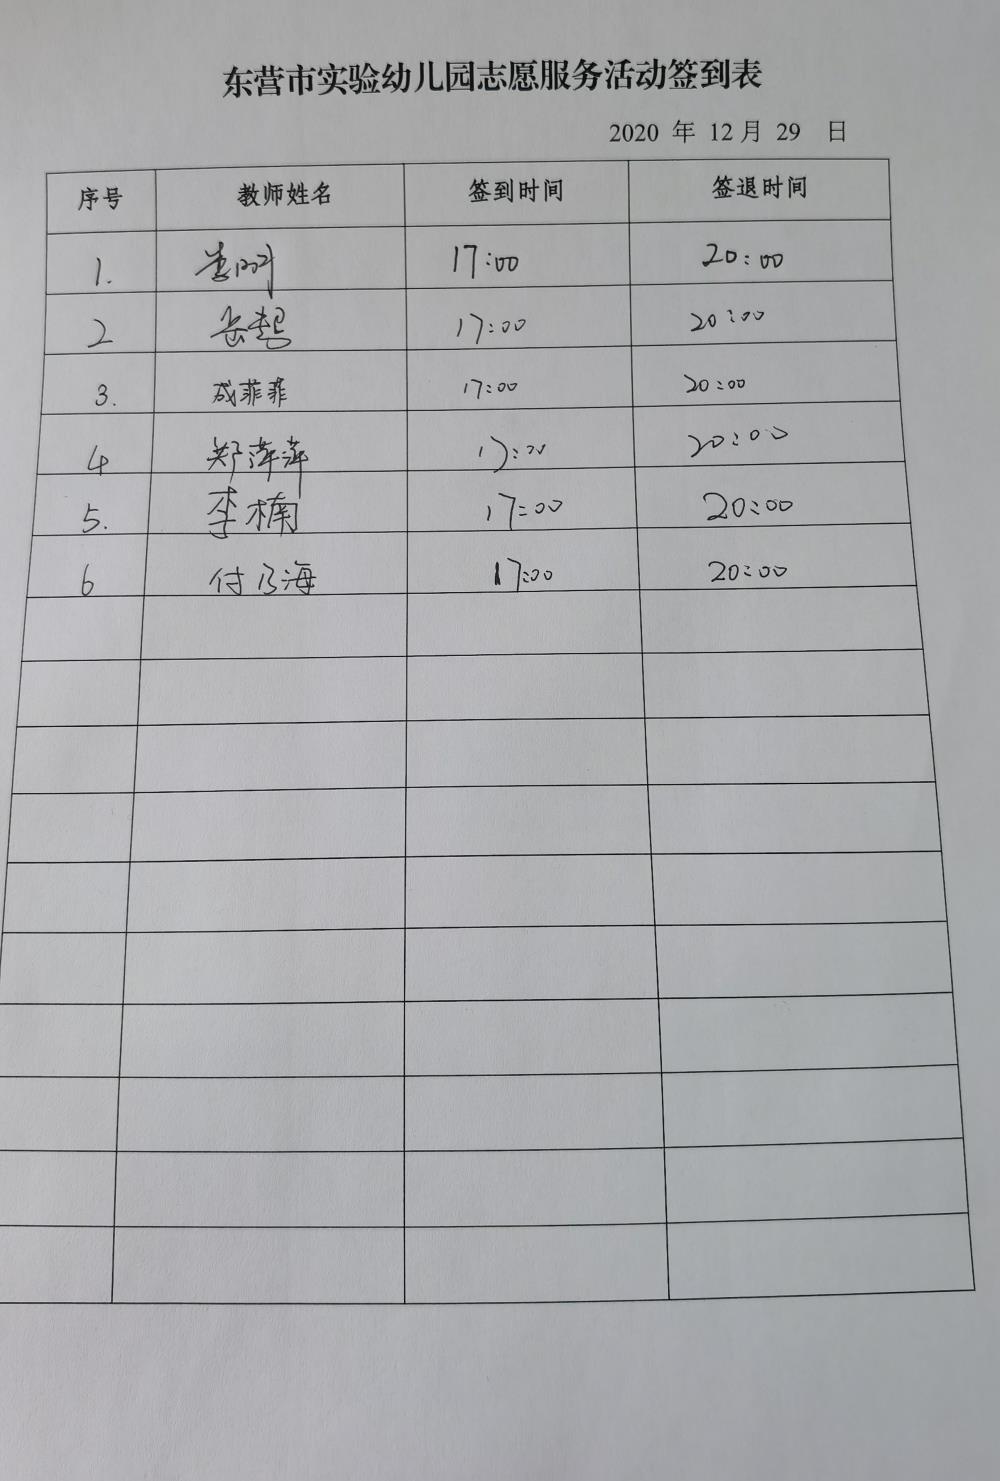 东营市实验幼儿园志愿服务活动签到表
2020 年 12月 29 日
序号 教师姓名 签到时间 签退时间
1. 17:00 20:00
2 岳 17:00 20:00
3. 成菲菲 17:00 20:00
4 郑萍萍 17:00 20:00
5. 李楠 17:00 20:00
6 付乃海 17:00 20:00